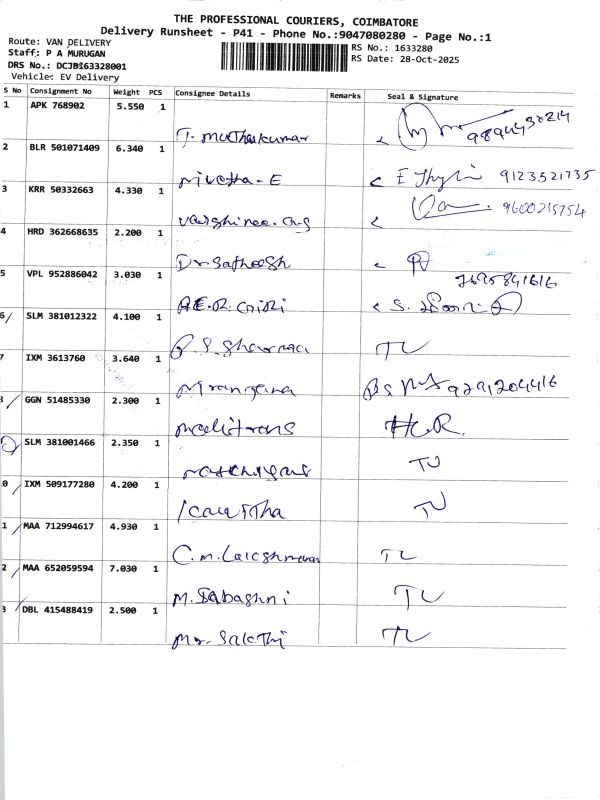 THE PROFESSIONAL COURIERS, COIMBATORE
Delivery Runsheet - P41 - Phone No.:9047080280 - Page No.:1
Route: VAN DELIVERY
Staff: P A MURUGAN
DRS No.: DCJB163328001
Vehicle: EV Delivery
RS No.: 1633280
RS Date: 28-Oct-2025
S No Consignment No Weight PCS Consignee Details Remarks Seal & Signature
1 APK 768902 5.550 1
T. Muthukumar
2 BLR 501071409 6.340 1
Nivetha-E 9123521735
3 KRR 50332663 4.330 1
9600215754
4 HRD 362668635 2.200 1
Dr Satheesh
5 VPL 952886042 3.030 1
7695841616
6 SLM 381012322 4.100 1
TU
7 IXM 3613760 3.640 1
Niranjana
8 GGN 51485330 2.300 1
Meditrans H.R.
9 SLM 381001466 2.350 1
TU
0 IXM 509177280 4.200 1
Kavitha TU
1 MAA 712994617 4.930 1
C.M. Lakshmanan TU
2 MAA 652059594 7.030 1
M. Sabashni TU
3 DBL 415488419 2.500 1
Mr. Sakthi TU